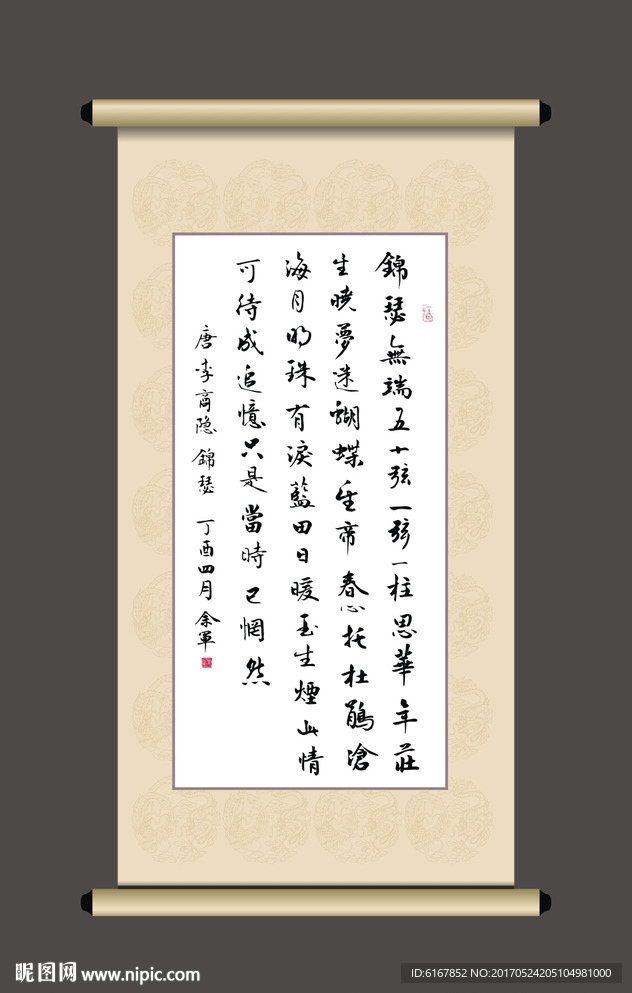 錦瑟無端五十弦一弦一柱思華年莊
生曉夢迷蝴蝶望帝春心托杜鵑滄
海月明珠有淚藍田日暖玉生煙此情
可待成追憶只是當時已惘然
唐李商隐錦瑟 丁酉四月余軍
昵图网 www.nipic.com
ID:6167852 NO:20170524205104981000